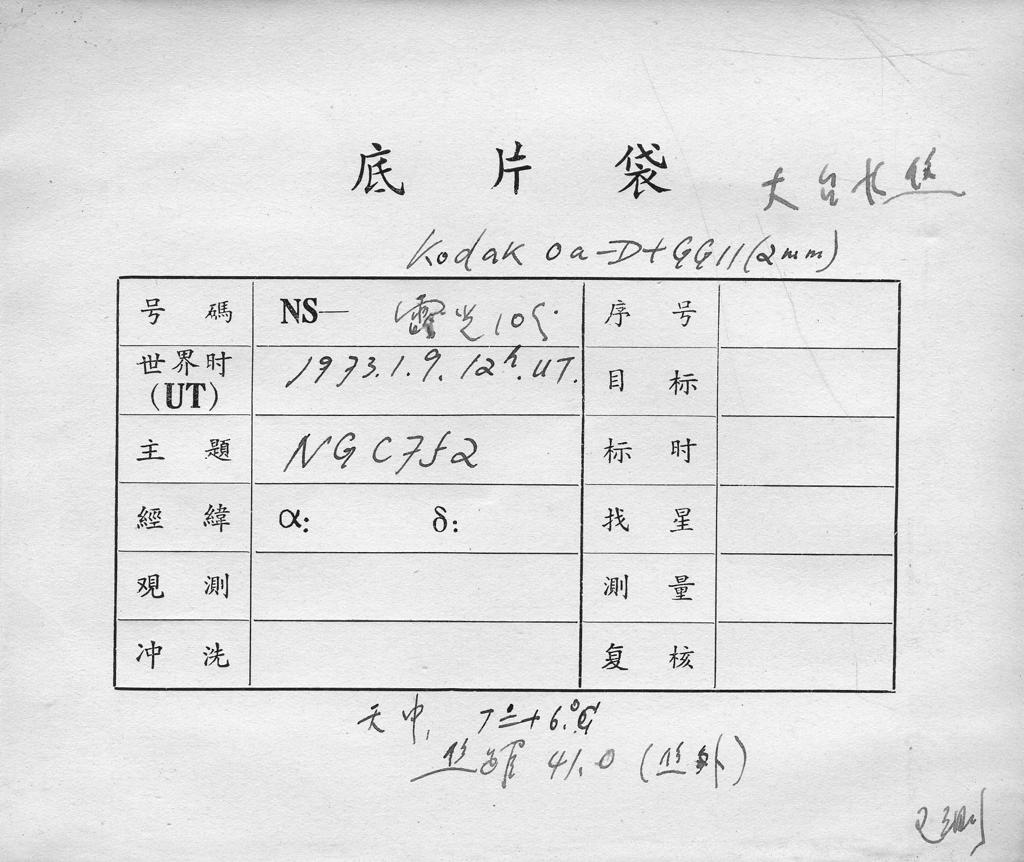 底片袋
Kodak Oa-D+GG11(2mm)
号碼 NS— 露光10分 序号
世界时(UT) 1973.1.9. 12h. UT. 目标
主題 NGC752 标时
經緯 α: δ: 找星
观測 測量
冲洗 复核
天中, T=+6.°
41.0
已测